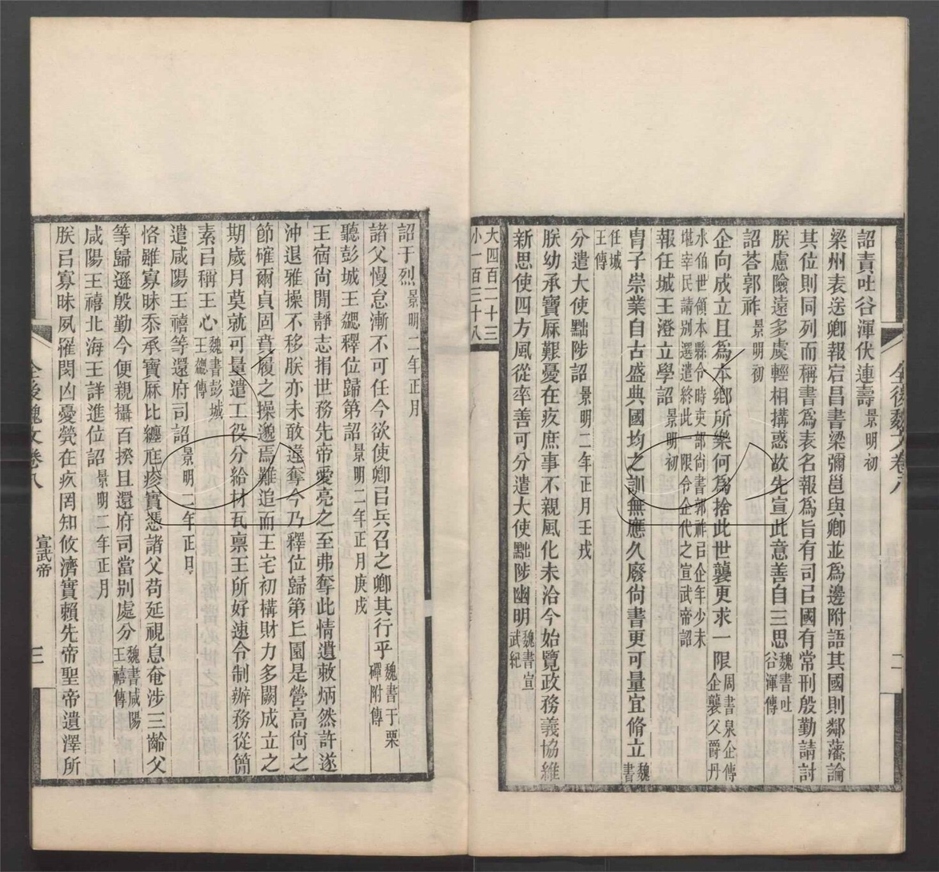 詔責吐谷渾伏連壽景明初
梁州表送卿報宕昌書梁彌邕與卿並爲邊附語其國則鄰藩論
其位則同列而稱書爲表名報爲旨有司㠯國有常刑殷勤請討
朕慮險遠多虞輕相搆惑故先宣此意善自三思魏書吐谷渾傳
詔荅郭祚景明初
企向成立且爲本鄉所樂何爲捨此世襲更求一限周書泉企傳企襲父爵丹
水侯世領本縣令時吏部尚書郭祚㠯企年少未
堪宰民請别選遣終此一限令企代之宣武帝詔
報任城王澄立學詔景明初
冑子崇業自古盛典國均之訓無應久廢尙書更可量宜脩立魏書
任城王傳
分遣大使黜陟詔景明二年正月壬戌
朕幼承寶厤艱憂在疚庶事不親風化未洽今始覽政務義協維
新思使四方風從率善可分遣大使黜陟幽明魏書宣武紀
大四百二十三
小一百三十八
全後魏文卷八
二
詔于烈景明二年正月
諸父慢怠漸不可任今欲使卿㠯兵召之卿其行乎魏書于栗磾附傳
聽彭城王勰釋位歸第詔景明二年正月庚戌
王宿尙閒靜志捐世務先帝愛亮之至弗奪此情遺敕炳然許遂
沖退雅操不移朕亦未敢違奪今乃釋位歸第丘園是營高尙之
節確爾貞固賁履之操邈焉難追而王宅初構財力多闕成立之
期歲月莫就可量遣工役分給材瓦稟王所好速令制辦務從簡
素㠯稱王心魏書彭城王勰傳
遣咸陽王禧等還府司詔景明二年正月
恪雖寡昧忝承寶厤比纏尫疹實憑諸父苟延視息奄涉三齡父
等歸遜殷勤今便親攝百揆且還府司當别處分魏書咸陽王禧傳
咸陽王禧北海王詳進位詔景明二年正月
朕㠯寡昧夙罹閔凶憂煢在疚罔知攸濟實賴先帝聖帝遺澤所
全後魏文卷八
宣武帝
三